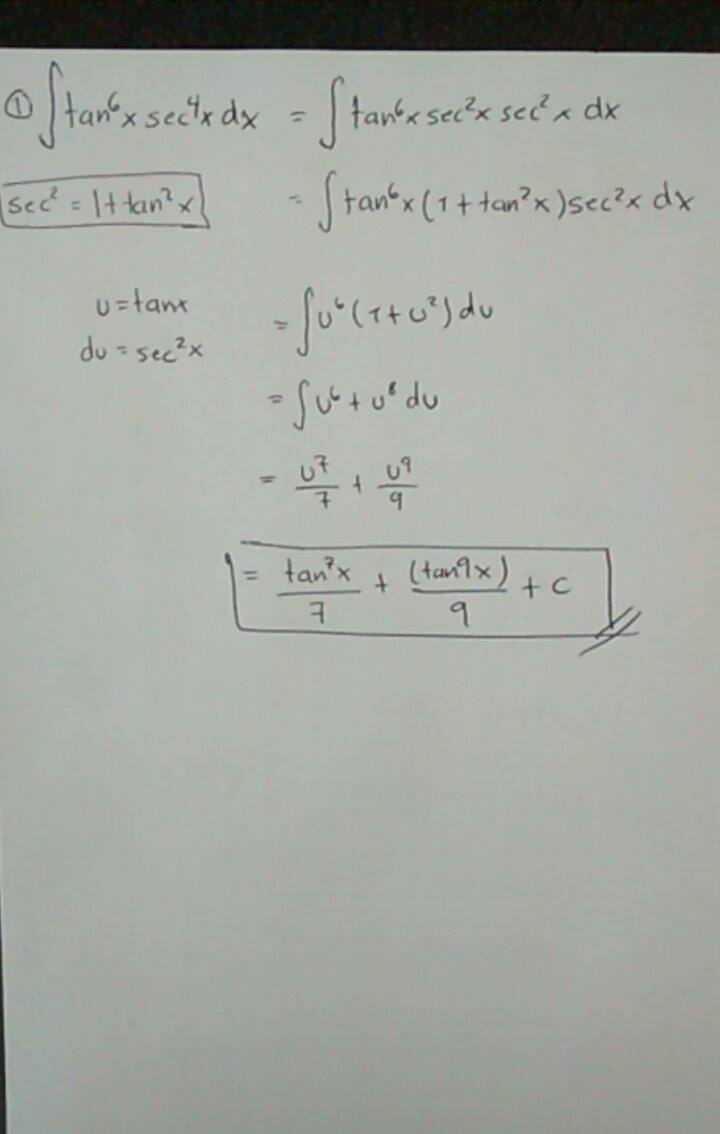 ① ∫tan⁶x sec⁴x dx = ∫tan⁶x sec²x sec²x dx
sec² = 1+tan²x = ∫tan⁶x(1+tan²x)sec²x dx
u=tanx = ∫u⁶(1+u²)du
du=sec²x
= ∫u⁶+u⁸ du
= u⁷/7 + u⁹/9
= tan⁷x/7 + (tan9x)/9 + C